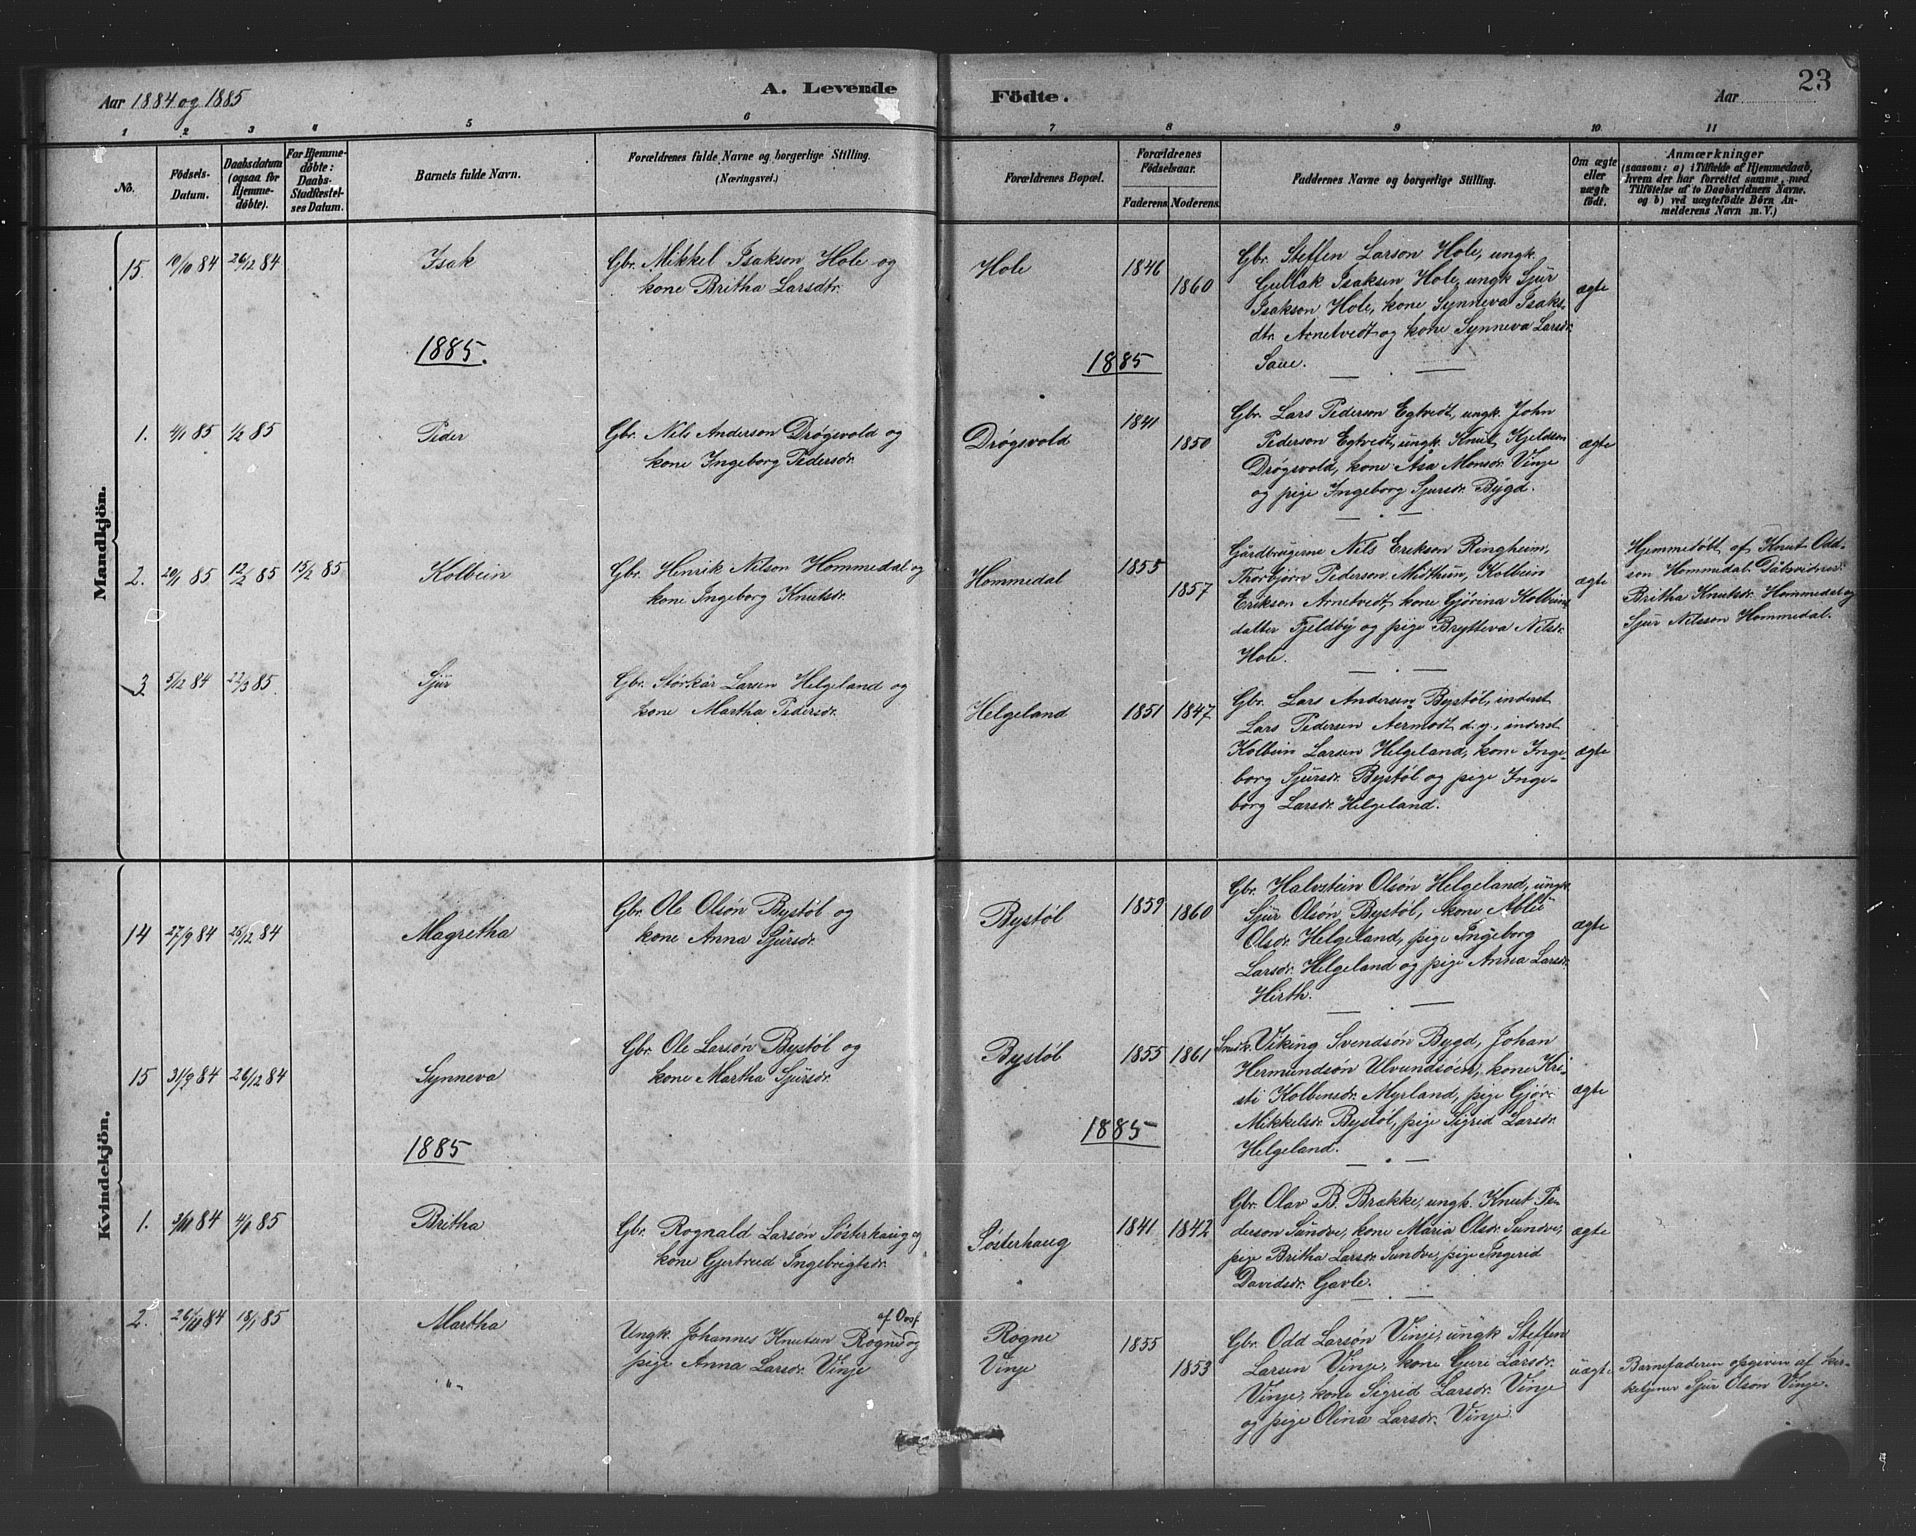 Aar 1884 og 1885
A. Levende
Födte.
Aar
23
1 2 3 4 5 6 7 8 9 10 11
No.
Födsels-
Datum.
Daabsdatum
(ogsaa for
Hjemme-
døbte).
For Hjemme-
døbte:
Daabs-
Stadfæstel-
ses Datum.
Barnets fulde Navn.
Forældrenes fulde Navne og borgerlige Stilling.
(Næringsvei.)
Forældrenes Bopæl.
Forældrenes
Födselsaar.
Faderens Moderens
Faddernes Navne og borgerlige Stilling.
Om ægte
eller
uægte
födt.
Anmærkninger
(saasom: a) i Tilfælde af Hjemmedaab,
hvem der har forrettet samme, med
Tilföielse af to Daabsvidners Navne.
og b) ved uægtefödte Börn An-
melderens Navn m. V.)
Mandkjön.
15. 10/10 84 26/12 84
Isak
Gbr. Mikkel Isakson Hole og
kone Britha Larsdtr.
Hole
1846
1860
Gbr. Steffen Larson Hole, ungk.
Gullak Isaksen Hole, ungk Sjur
Isakson Hole, kone Synneva Isaks-
dtr. Arnetvedt og kone Synneva Larsdr.
Saue.
ægte
1885.
1885
1. 4/1 85 1/2 85
Peder
Gbr. Nils Anderson Drøgsvold og
kone Ingeborg Pedersdr.
Drøgsvold
1841
1850
Gbr. Lars Pederson Egtvedt, ungk. John
Pederson Egtvedt, ungk. Knut Kjeldson
Drøgsvold, kone Åsa Monsdr. Vinje
og pige Ingeborg Sjursdr. Bygd.
ægte
2. 20/1 85 12/2 85 15/2 85
Kolbein
Gbr. Henrik Nilson Hommedal og
kone Ingeborg Knutsdr.
Hommedal
1855
1857
Gårdbrugerne Nils Erikson Ringheim,
Thorbjørn Pederson Midthun, Kolbein
Erikson Arnetvedt, kone Gjørina Kolbeins
datter Fjeldby og pige Brytteva Nilsdr.
Hole.
ægte
Hjemmedøbt af Knut Odd-
son Hommedal. Dåbsvidner:
Britha Knutsdr. Hommedal og
Sjur Nilsson Hommedal.
3. 5/12 84 22/3 85.
Sjur
Gbr. Størkår Larsen Helgeland og
kone Martha Pedersdr.
Helgeland
1851 1847
Gbr. Lars Andersen Bystøl, inderst
Lars Pedersen Aermodt d. y., inderst
Kolbein Larsen Helgeland, kone Inge-
borg Sjursdr. Bystøl og pige Inge-
borg Larsdr. Helgeland.
ægte
Kvindekjön.
14 27/9 84 26/12 84
Magretha
Gbr. Ole Olsøn Bystøl og
kone Anna Sjursdr.
Bystøl
1859 1860
Gbr. Halvstein Olsøn Helgeland, ungk.
Sjur Olsøn Bystøl, kone Ablu
Olsdr. Helgeland, pige Ingeborg
Larsdr. Helgeland og pige Anna Larsdr.
Hirth.
ægte
15 31/9 84 26/12 84
Synneva
Gbr. Ole Larsøn Bystøl og
kone Martha Sjursdr.
Bystøl
1855 1861
Smedk. Viking Svendsøn Bygd, Johan
Hermundsøn Ulvundsøen, kone Kri-
sti Kolbensdr. Myrland, pige Gjør-
Mikkelsdr. Bystøl, pige Sigrid Larsdr.
Helgeland.
ægte
1885
1885
1. 3/11 84 4/1 85
Britha
Gbr. Rognald Larsøn Sösterhaug og
kone Gjertrud Ingebrigtsdr.
Sösterhaug
1841 1842
Gbr. Olav B. Brække, ungk. Knut Pe-
derson Sundve, kone Maria Olsdr. Sundve,
pige Britha Larsdr. Sundve, pige Ingerid
Davidsdr. Gavle.
ægte
2. 26/11 84 18/1 85
Martha
Ungk. Johannes Knutsen Rogne og
pige Anna Larsdr. Vinje
Rogne
Vinje
1855
1853
Gbr. Odd Larsøn Vinje, ungk Steffen
Larsen Vinje, kone Guri Larsdr.
Vinje, kone Sigrid Larsdr. Vinje
og pige Olina Larsdr. Vinje.
uægte
Barnefaderen opgiven af kir-
ketjener Sjur Olsøn Vinje.